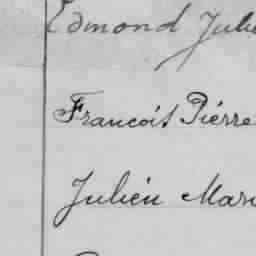 Edmond Julie
Francois Piérre
Julien Mari